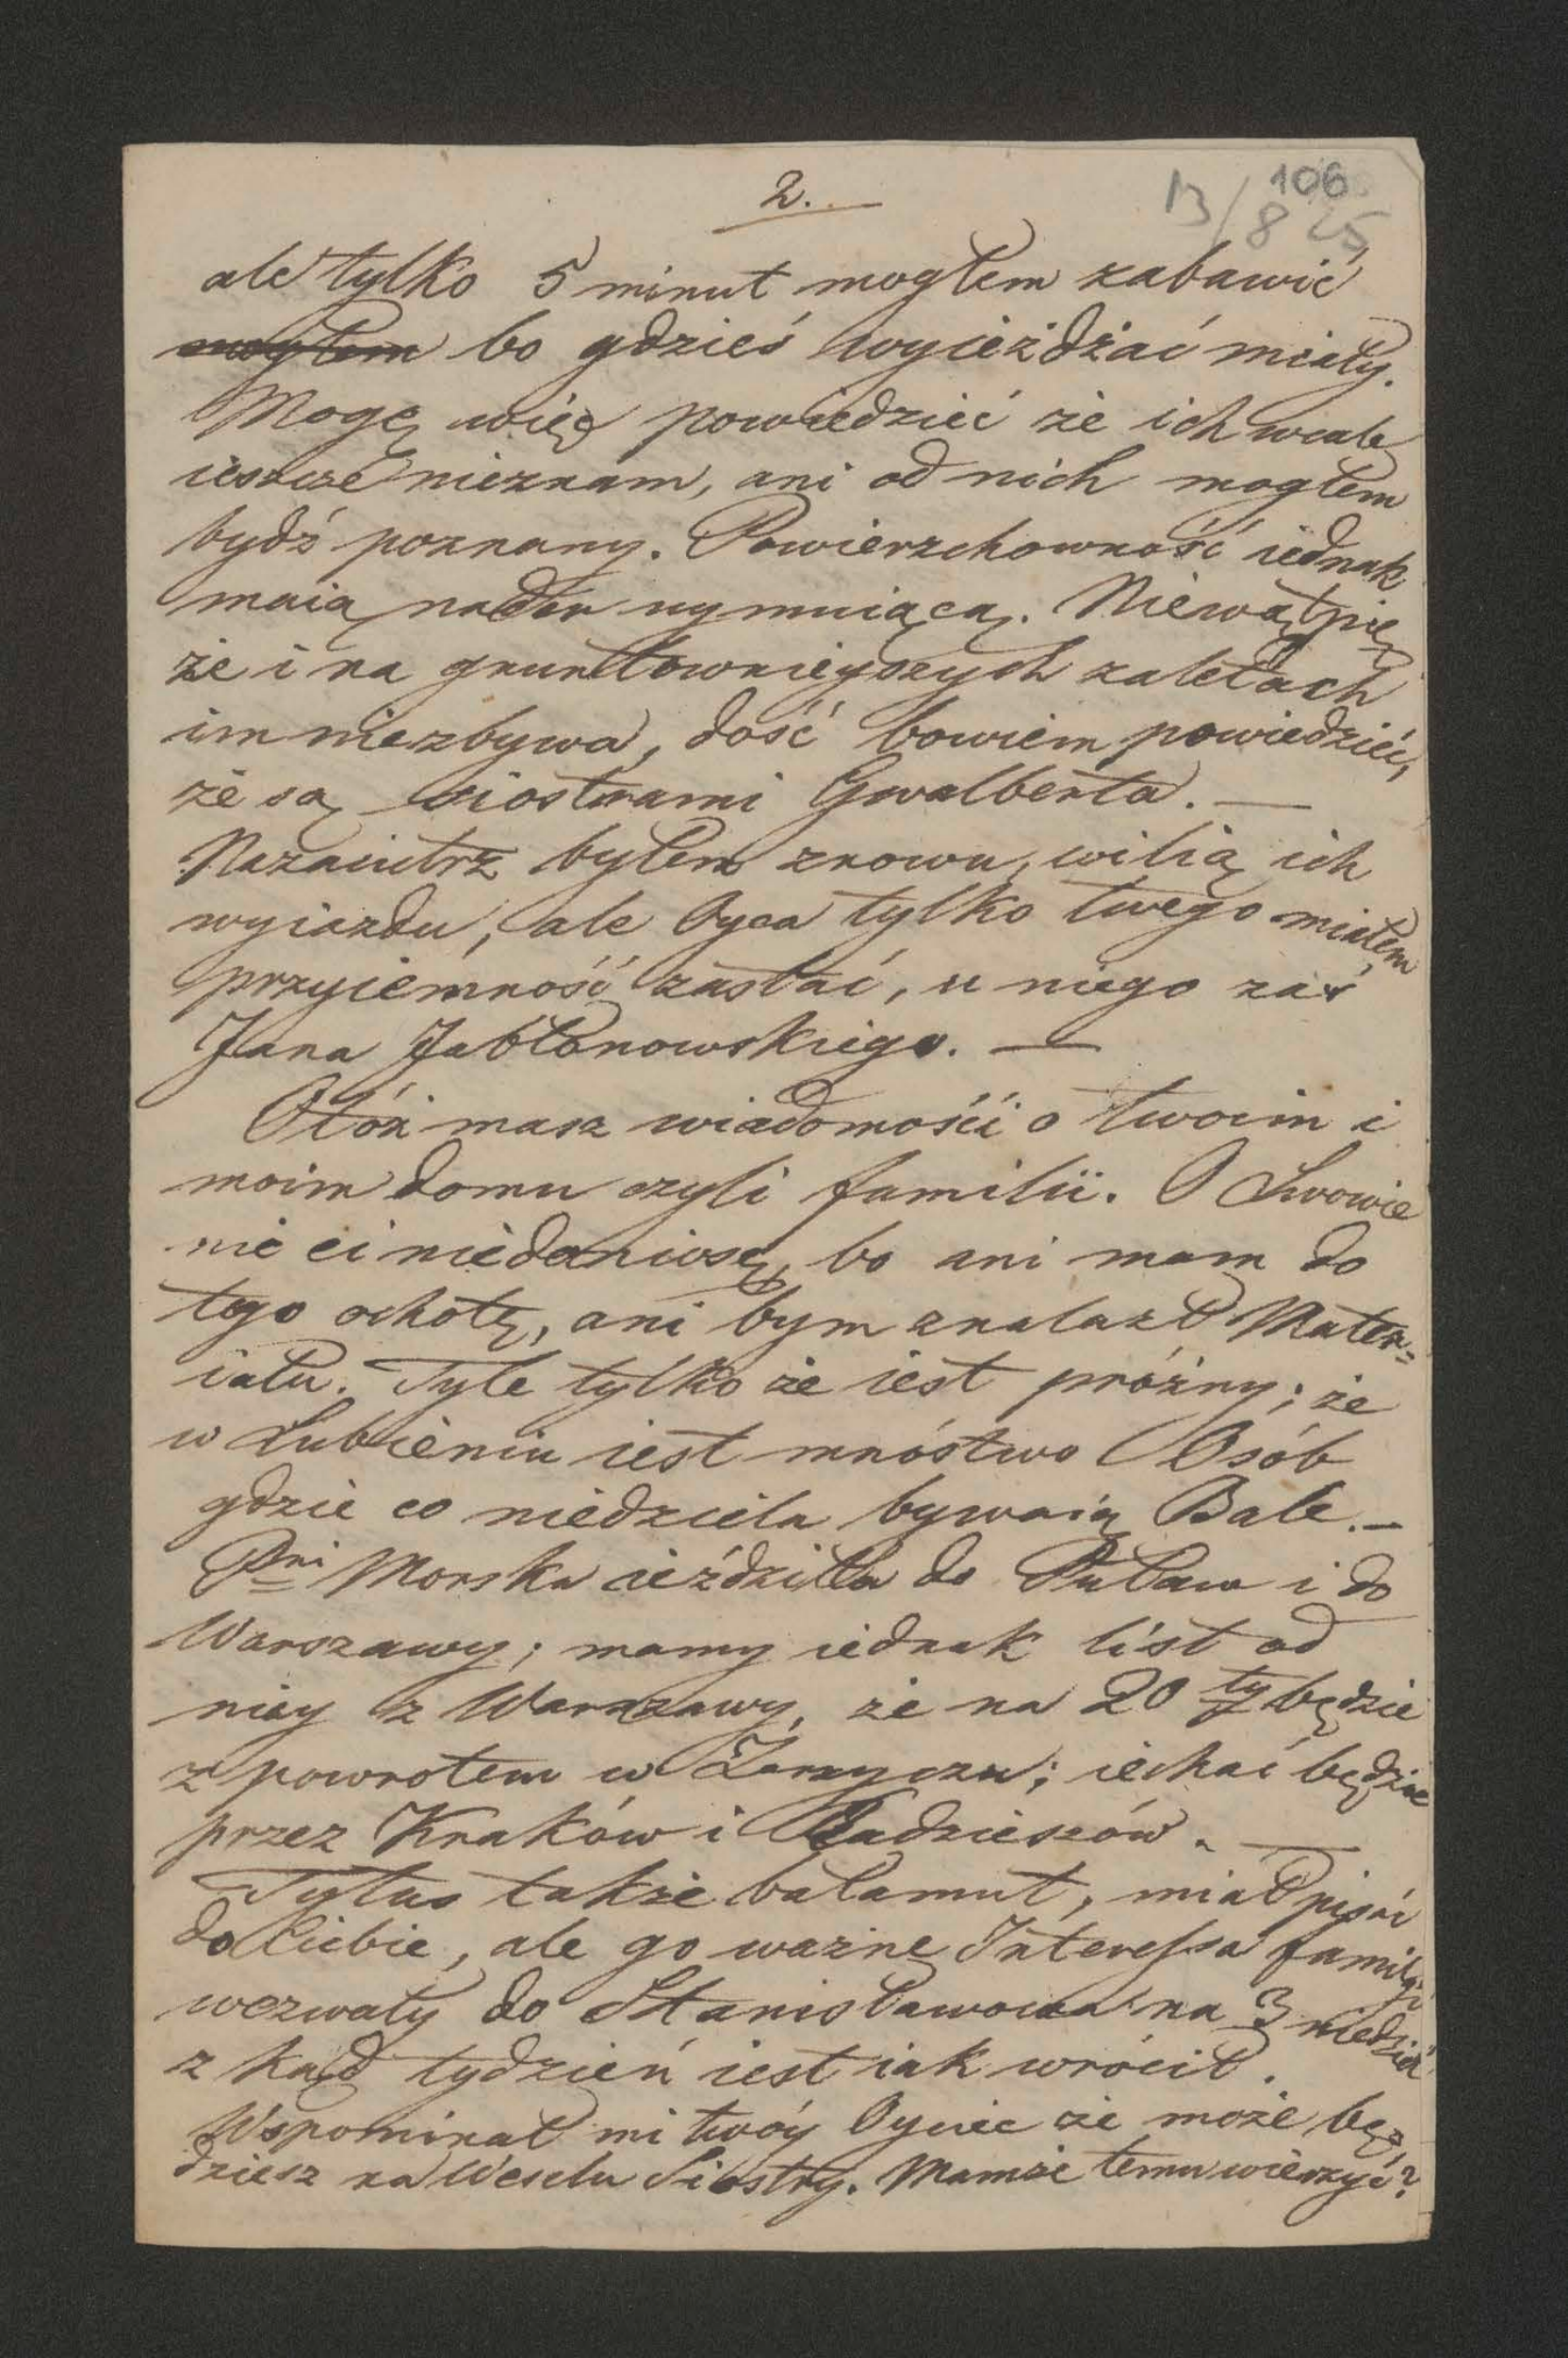 2.
106
13/8 25
ale tylko 5 minut mogłem zabawić
mogłem bo gdzieś wyieżdżać miały.
Mogę więc powiedzieć że ich wcale
ieszcze nieznam, ani od nich mogłem
bydź poznany. Powierzchowność iednak
maią nader uymuiącą. Niewątpię
że i na gruntownieyszych zaletach
im niezbywa, dość bowiem powiedzieć,
że są siostrami Gwalberta. —
Nazaiutrz byłem znowu, wilią ich
wyiazdu, ale Oyca tylko twego miałem
przyiemność zastać, u niego zaś
Jana Jabłonowskiego. —
Otóż masz wiadomości o twoim i
moim domu czyli familii. O Lwowie
nic ci niedoniosę, bo ani mam do
tego ochotę, ani bym znalazł Mater=
iału. Tyle tylko że iest próżny; że
w Lubieniu iest mnóstwo Osób
gdzie co niedziela bywaią Bale. —
Pni Morska ieździła do Puław i do
Warszawy; mamy iednak list od
niey z Warszawy, że na 20 ty będzie
z powrotem w Zarzyczu; iechać będzie
przez Kraków i Radzieszów. —
Tytus także bałamut, miał pisać
do Ciebie, ale go ważne Interessa familij
wezwały do Stanisławowa na 3 niedziel
z kąd tydzień iest iak wrócił.
Wspominał mi twóy Oyciec że może bę=
dziesz na Weselu Siostry. Mamże temu wierzyć?